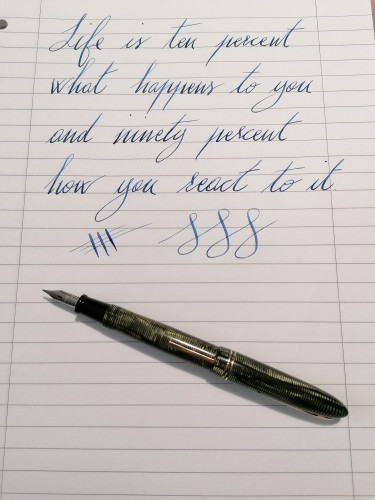 Life is ten percent
what happens to you
and ninety percent
how you react to it.